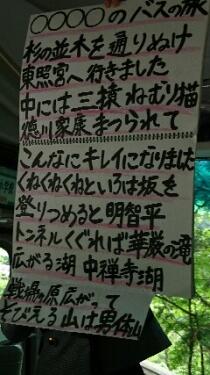 ○○○○のバスの旅
杉の並木を通りぬけ
東照宮へ行きました
中には三猿ねむり猫
徳川家康まつられて
こんなにキレイになりました
くねくねくねといろは坂を
登りつめると明智平
トンネルくぐれば華厳の滝
広がる湖 中禅寺湖
戦場ヶ原広がって
そびえる山は男体山